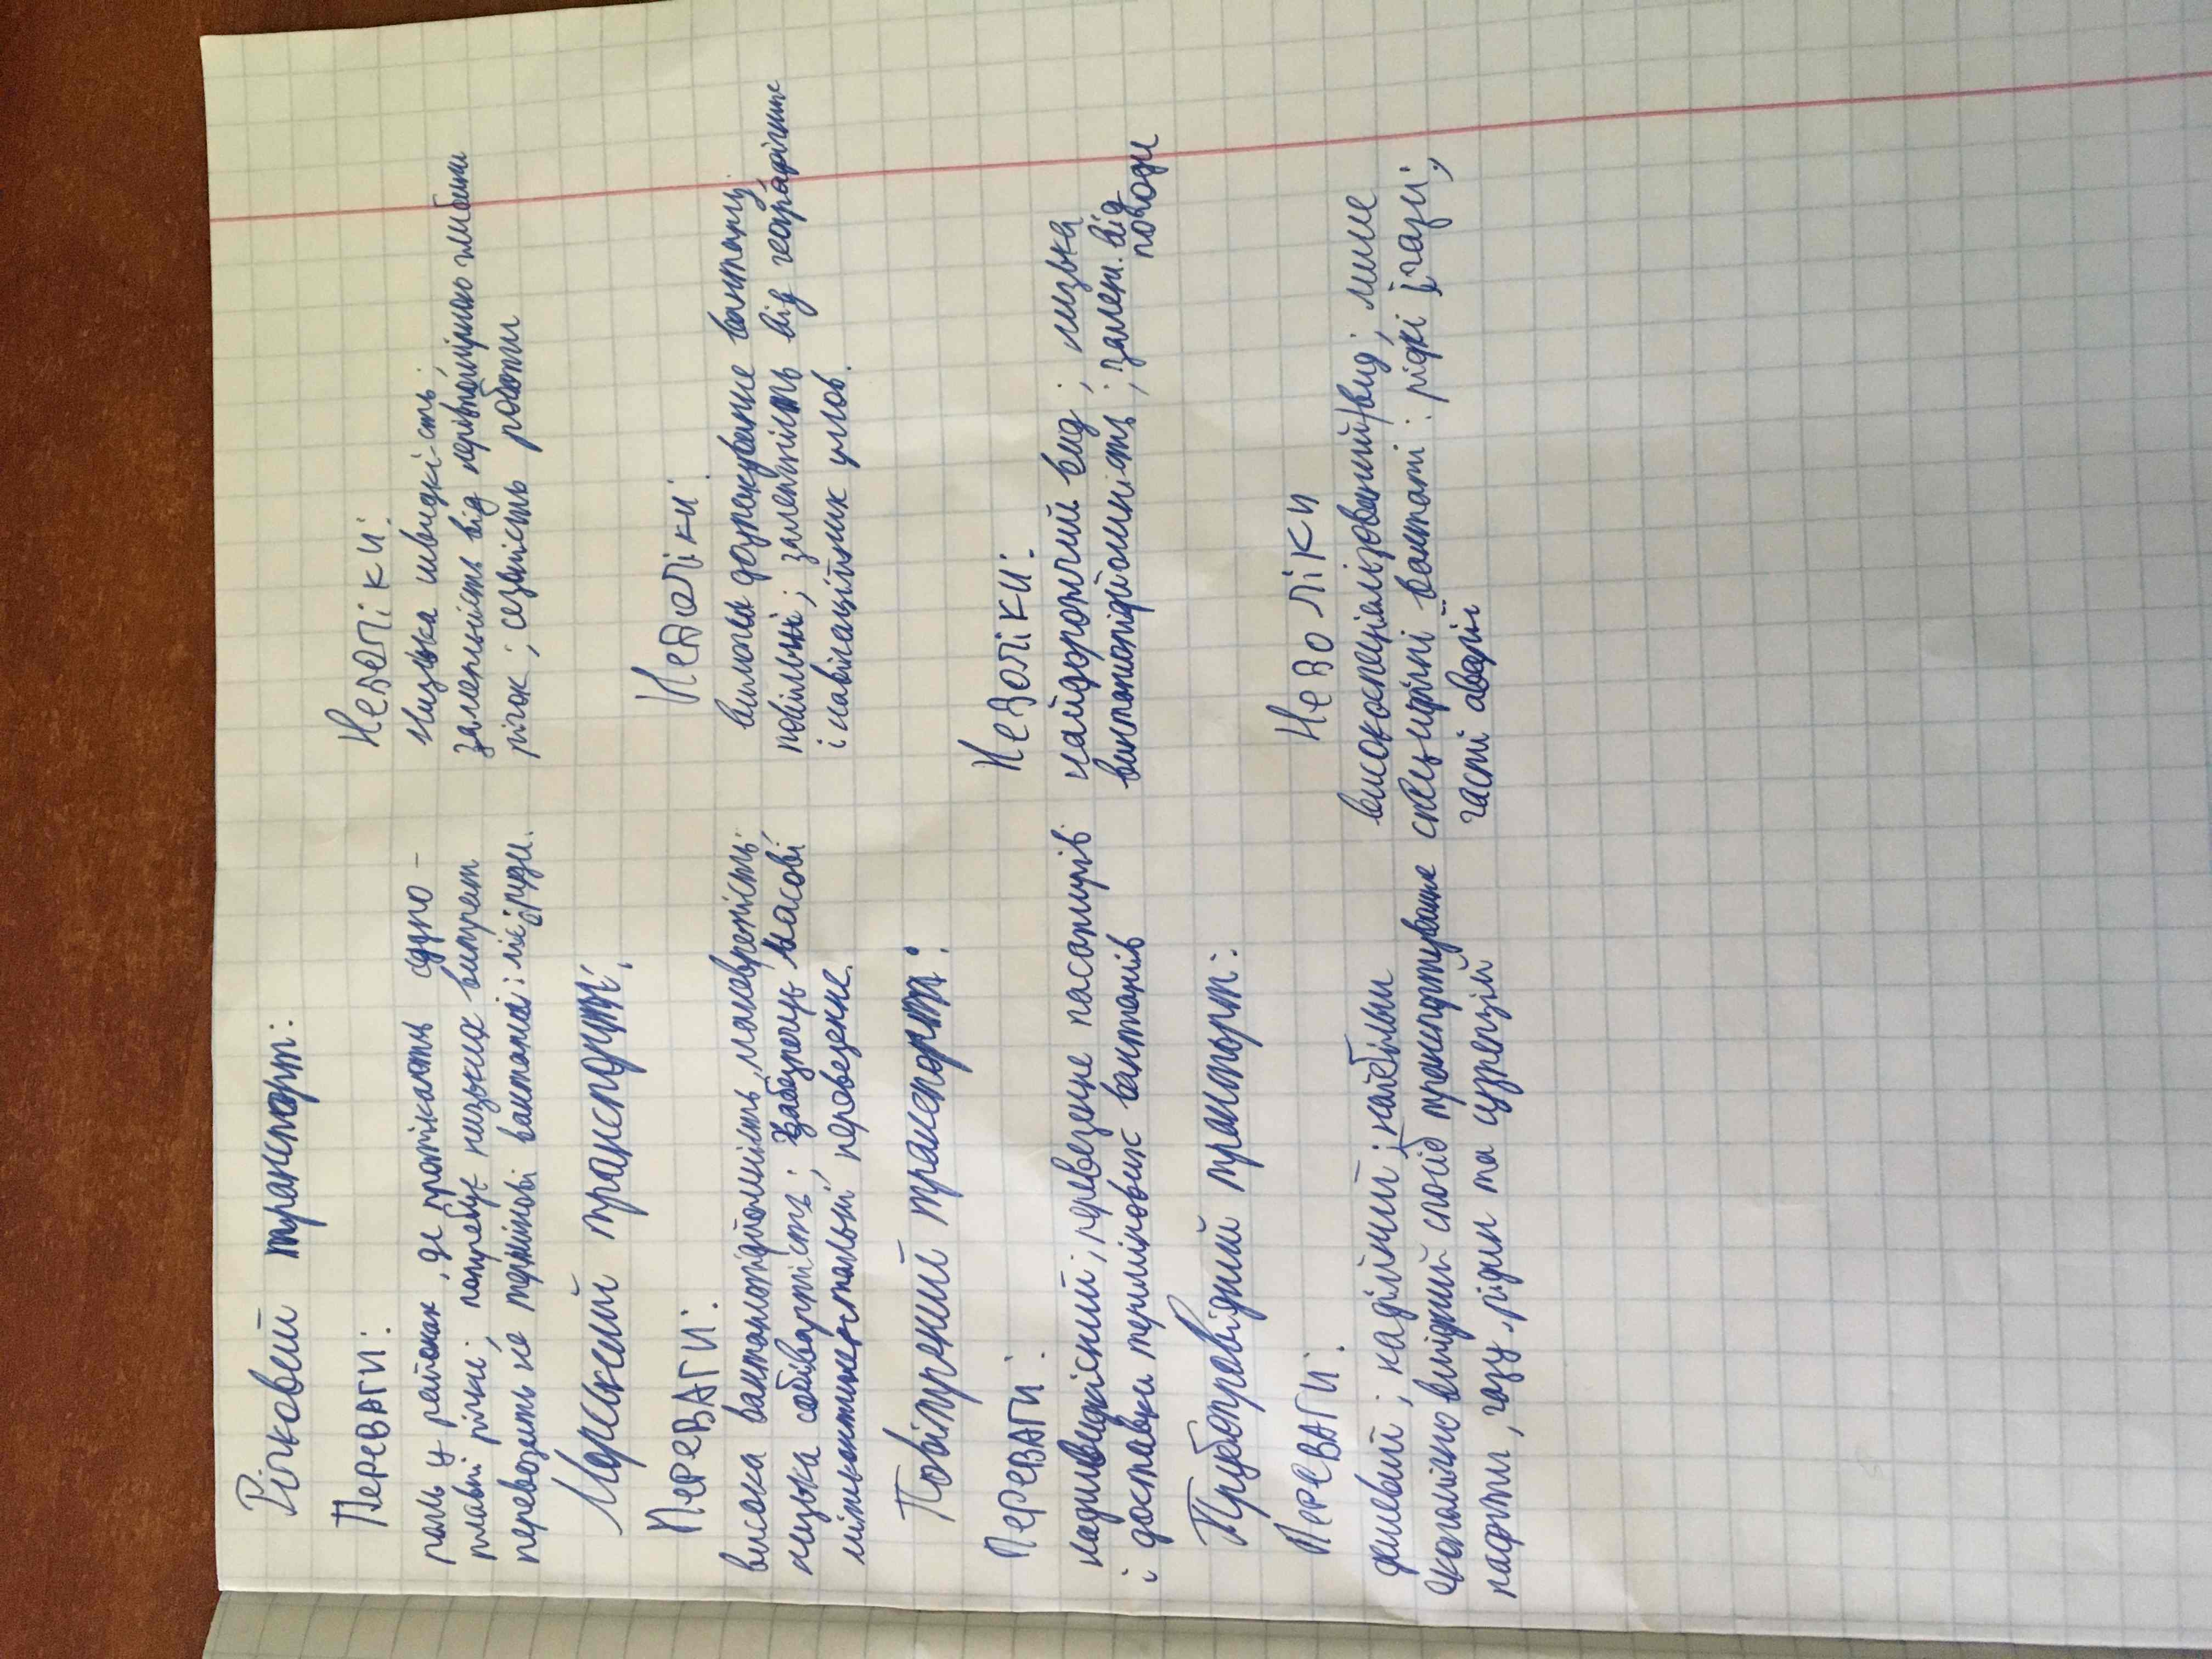 Річковий транспорт:
Переваги:
роль у районах, де протікають судно-
плавні річки; потребує низьких витрат
перевозить не термінові вантажі: ліс, руди.
Недоліки:
низька швидкі-сть;
залежність від нерівномірного глибини
річок; сезність роботи
Морський транспорт:
Переваги:
висока вантажопідйомність, маневреність
низька собівартість; забезпечує масові
міжконтинентальні перевезення.
Недоліки:
вимоги до пакування вантажу;
повільні; залежність від географічних
і навігаційних умов.
Повітряний транспорт:
Переваги:
надшвидкісний; перевезене пасажирів
і доставки термінових вантажів
Недоліки:
найдорожчий вид; низька
вантажопідйомність; залеж. від
погоди
Трубопровідний транспорт:
Переваги:
дешевий; надійний; найбільш
економічно вигідний спосіб транспортування
нафти, газу, рідин та суспензій
Недоліки
високоспеціалізований вид; лише
специфічні вантажі: рідкі і газы;
часті аварії